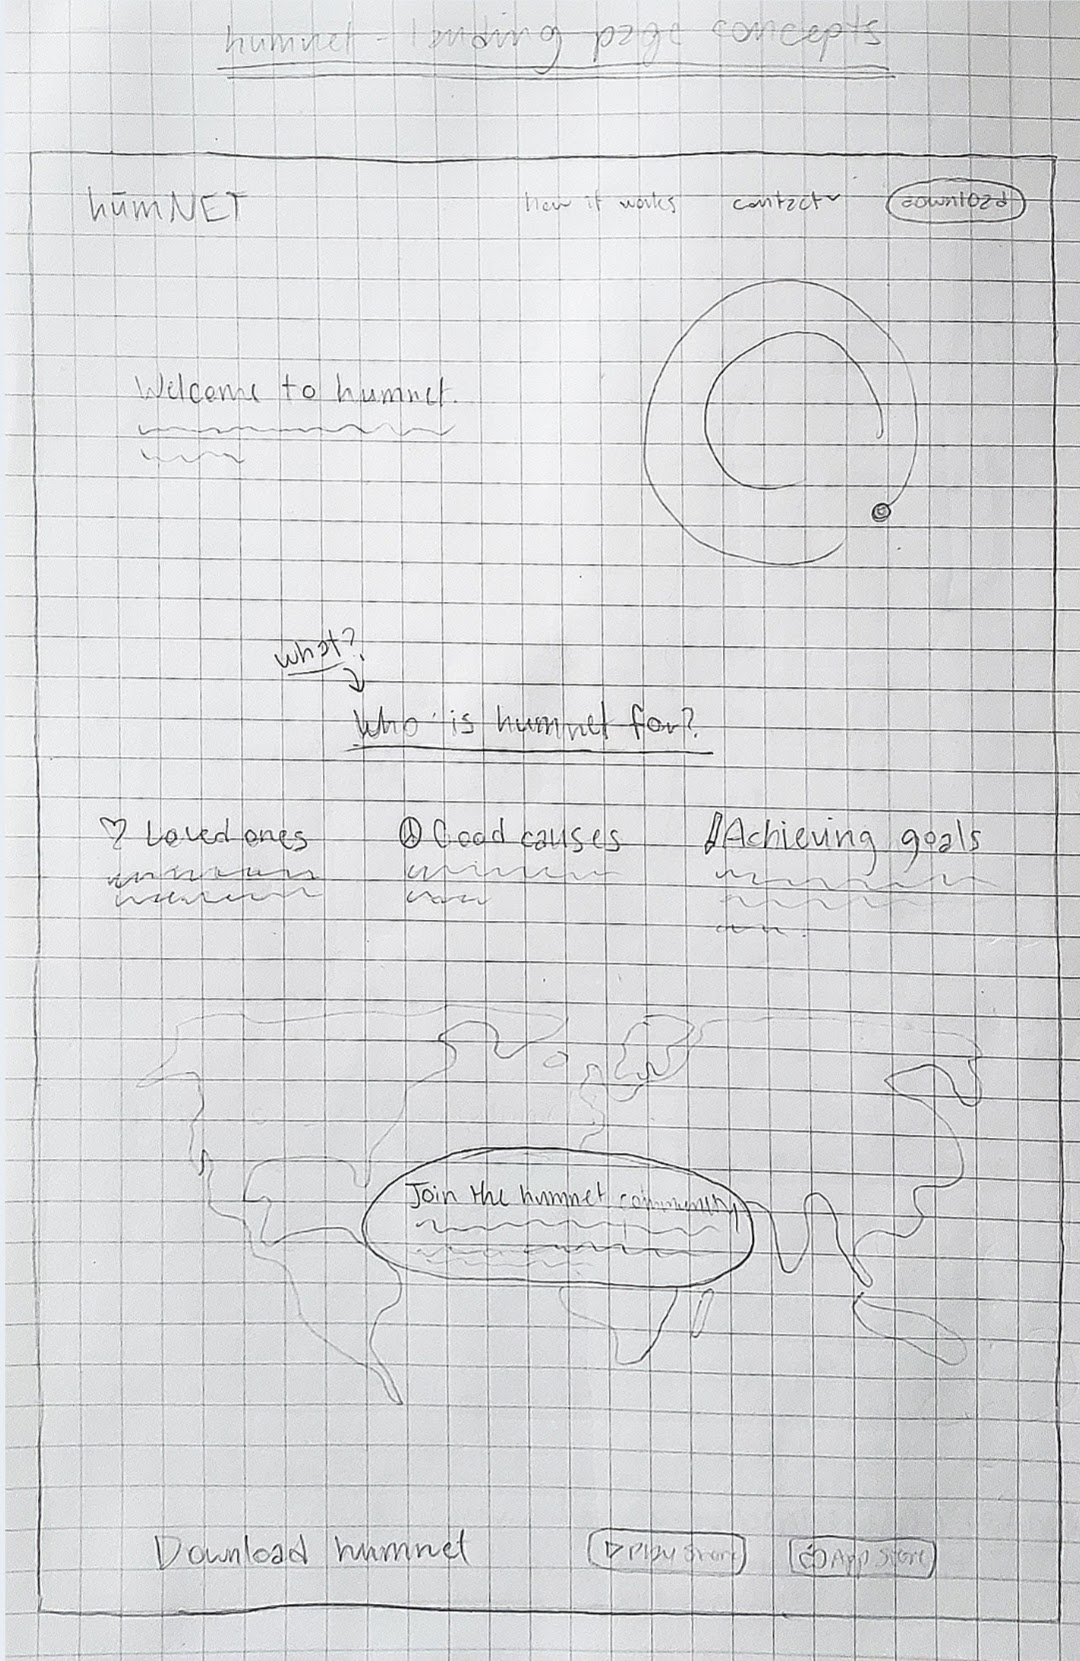 humnet - landing page concepts
hūmNET
how it works
contact
download
Welcome to humnet.
what?
Who is humnet for?
Loved ones
Good causes
Achieving goals
Join the humnet community
Download humnet
Play Store
App Store